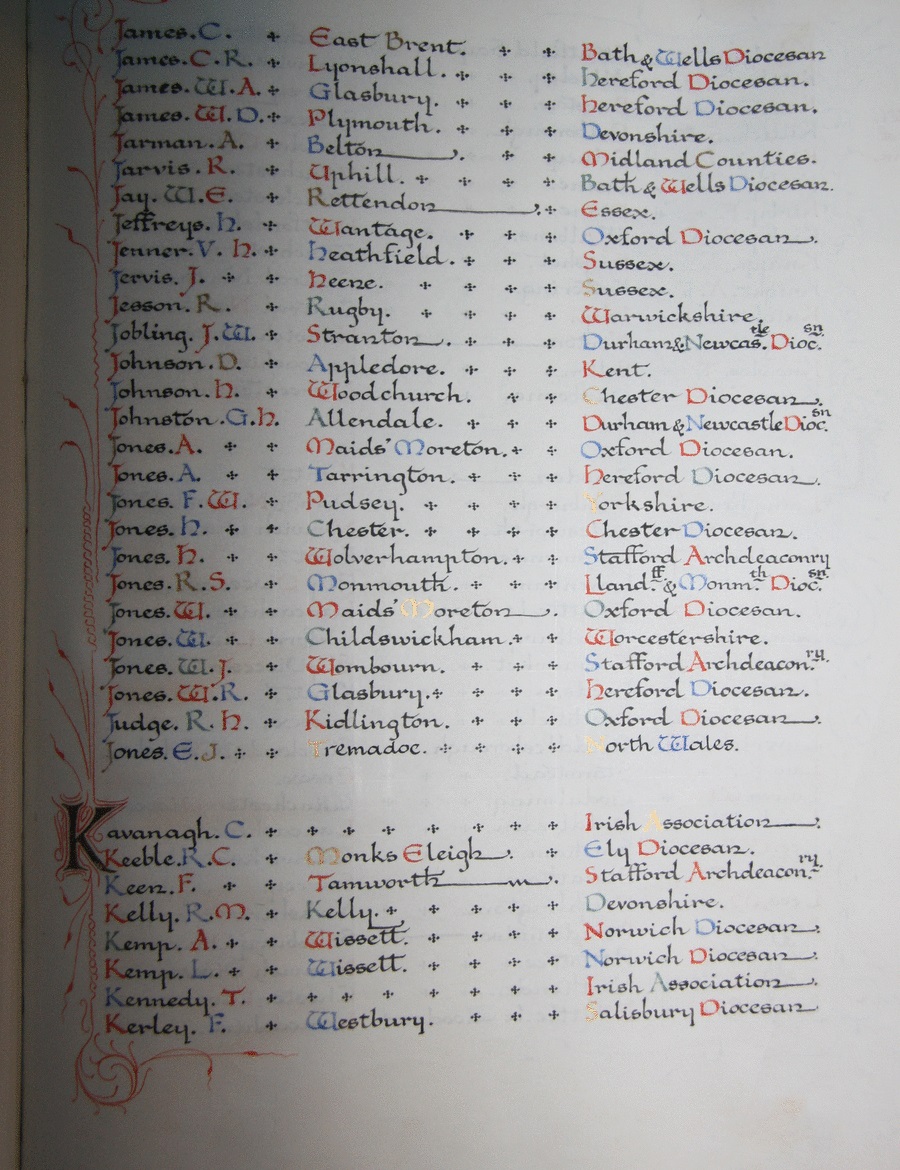 James. C. East Brent. Bath & Wells Diocesan
James. C. R. Lyonshall. Hereford Diocesan.
James. W. A. Glasbury. Hereford Diocesan.
James. W. D. Plymouth. Devonshire.
Jarman. A. Belton. Midland Counties.
Jarvis. R. Uphill. Bath & Wells Diocesan.
Jay. W. E. Rettendon. Essex.
Jeffreys. H. Wantage. Oxford Diocesan.
Jenner. V. H. Heathfield. Sussex.
Jervis. J. Heene. Sussex.
Jesson. R. Rugby. Warwickshire.
Jobling. J. W. Stranton. Durham & Newcas.tle Dioc.sn
Johnson. D. Appledore. Kent.
Johnson. H. Woodchurch. Chester Diocesan.
Johnston. G. H. Allendale. Durham & Newcastle Dioc.sn
Jones. A. Maids' Moreton. Oxford Diocesan.
Jones. A. Tarrington. Hereford Diocesan.
Jones. F. W. Pudsey. Yorkshire.
Jones. H. Chester. Chester Diocesan.
Jones. H. Wolverhampton. Stafford Archdeaconry
Jones. R. S. Monmouth. Lland.ff & Monm.th Dioc.sn
Jones. W. Maids' Moreton. Oxford Diocesan.
Jones. W. Childswickham. Worcestershire.
Jones. W. J. Wombourn. Stafford Archdeacon.ry.
Jones. W. R. Glasbury. Hereford Diocesan.
Judge. R. H. Kidlington. Oxford Diocesan.
Jones. E. J. Tremadoc. North Wales.
Kavanagh. C. Irish Association.
Keeble. R. C. Monks Eleigh. Ely Diocesan.
Keen. F. Tamworth. Stafford Archdeacon.ry.
Kelly. R. M. Kelly. Devonshire.
Kemp. A. Wissett. Norwich Diocesan.
Kemp. L. Wissett. Norwich Diocesan.
Kennedy. T. Irish Association.
Kerley. F. Westbury. Salisbury Diocesan